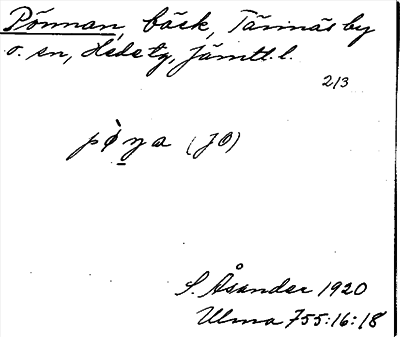 Pönnan, bäck, Tännäs by
o. sn, Hede tg, Jämtl. l.
2/3
(JÖ)
S. Åsander 1920
Ulma 755:16:18